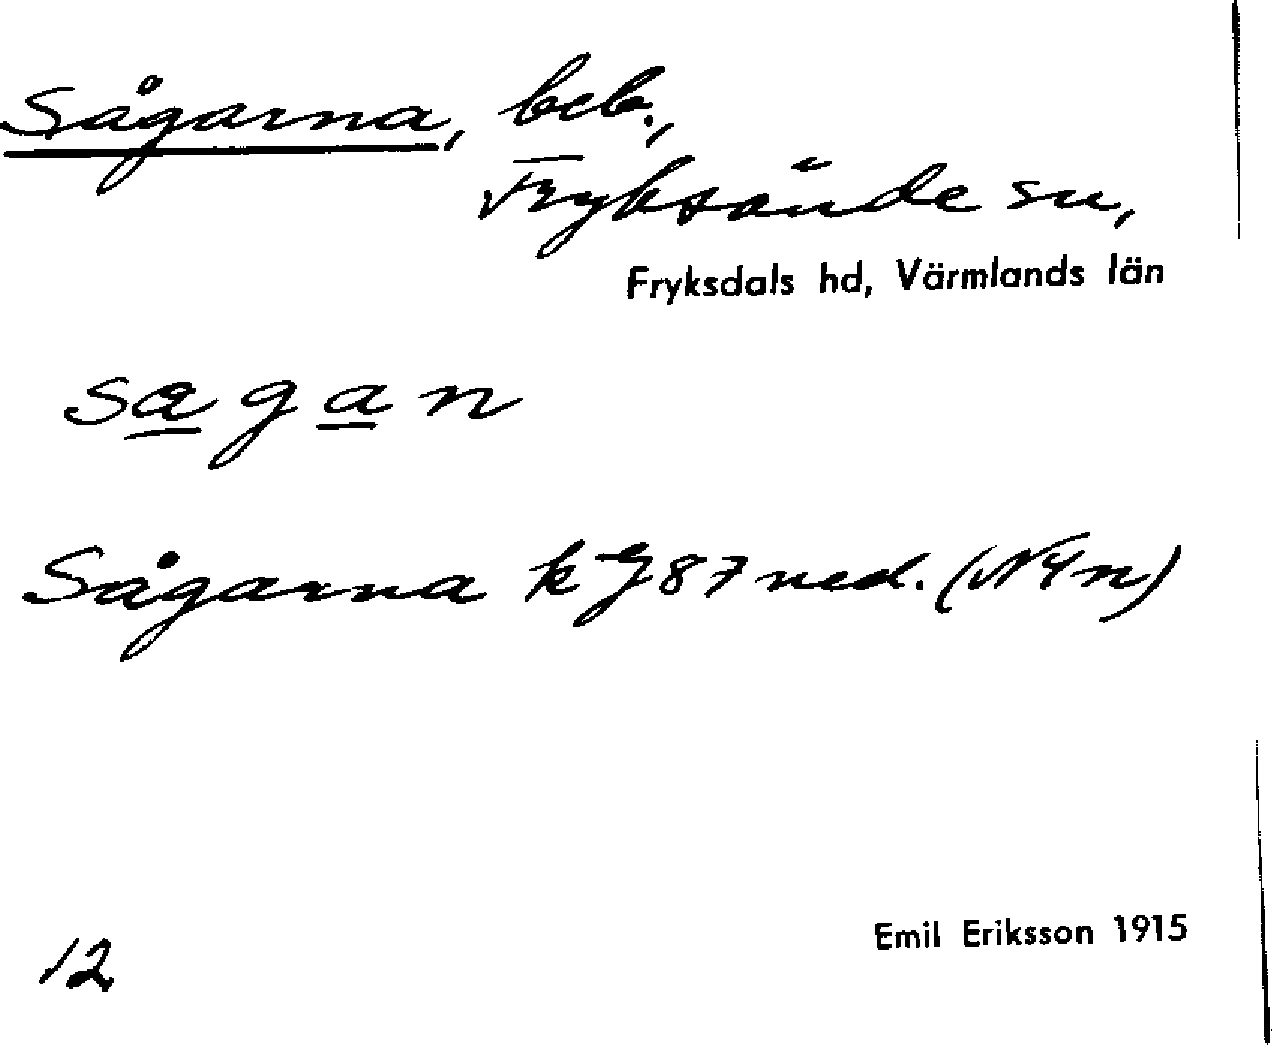 Sågarna, beb.,
Fryksände sn,
Fryksdals hd, Värmlands län
sagan
Sågarna k 87 ned. (N4n)
12
Emil Eriksson 1915